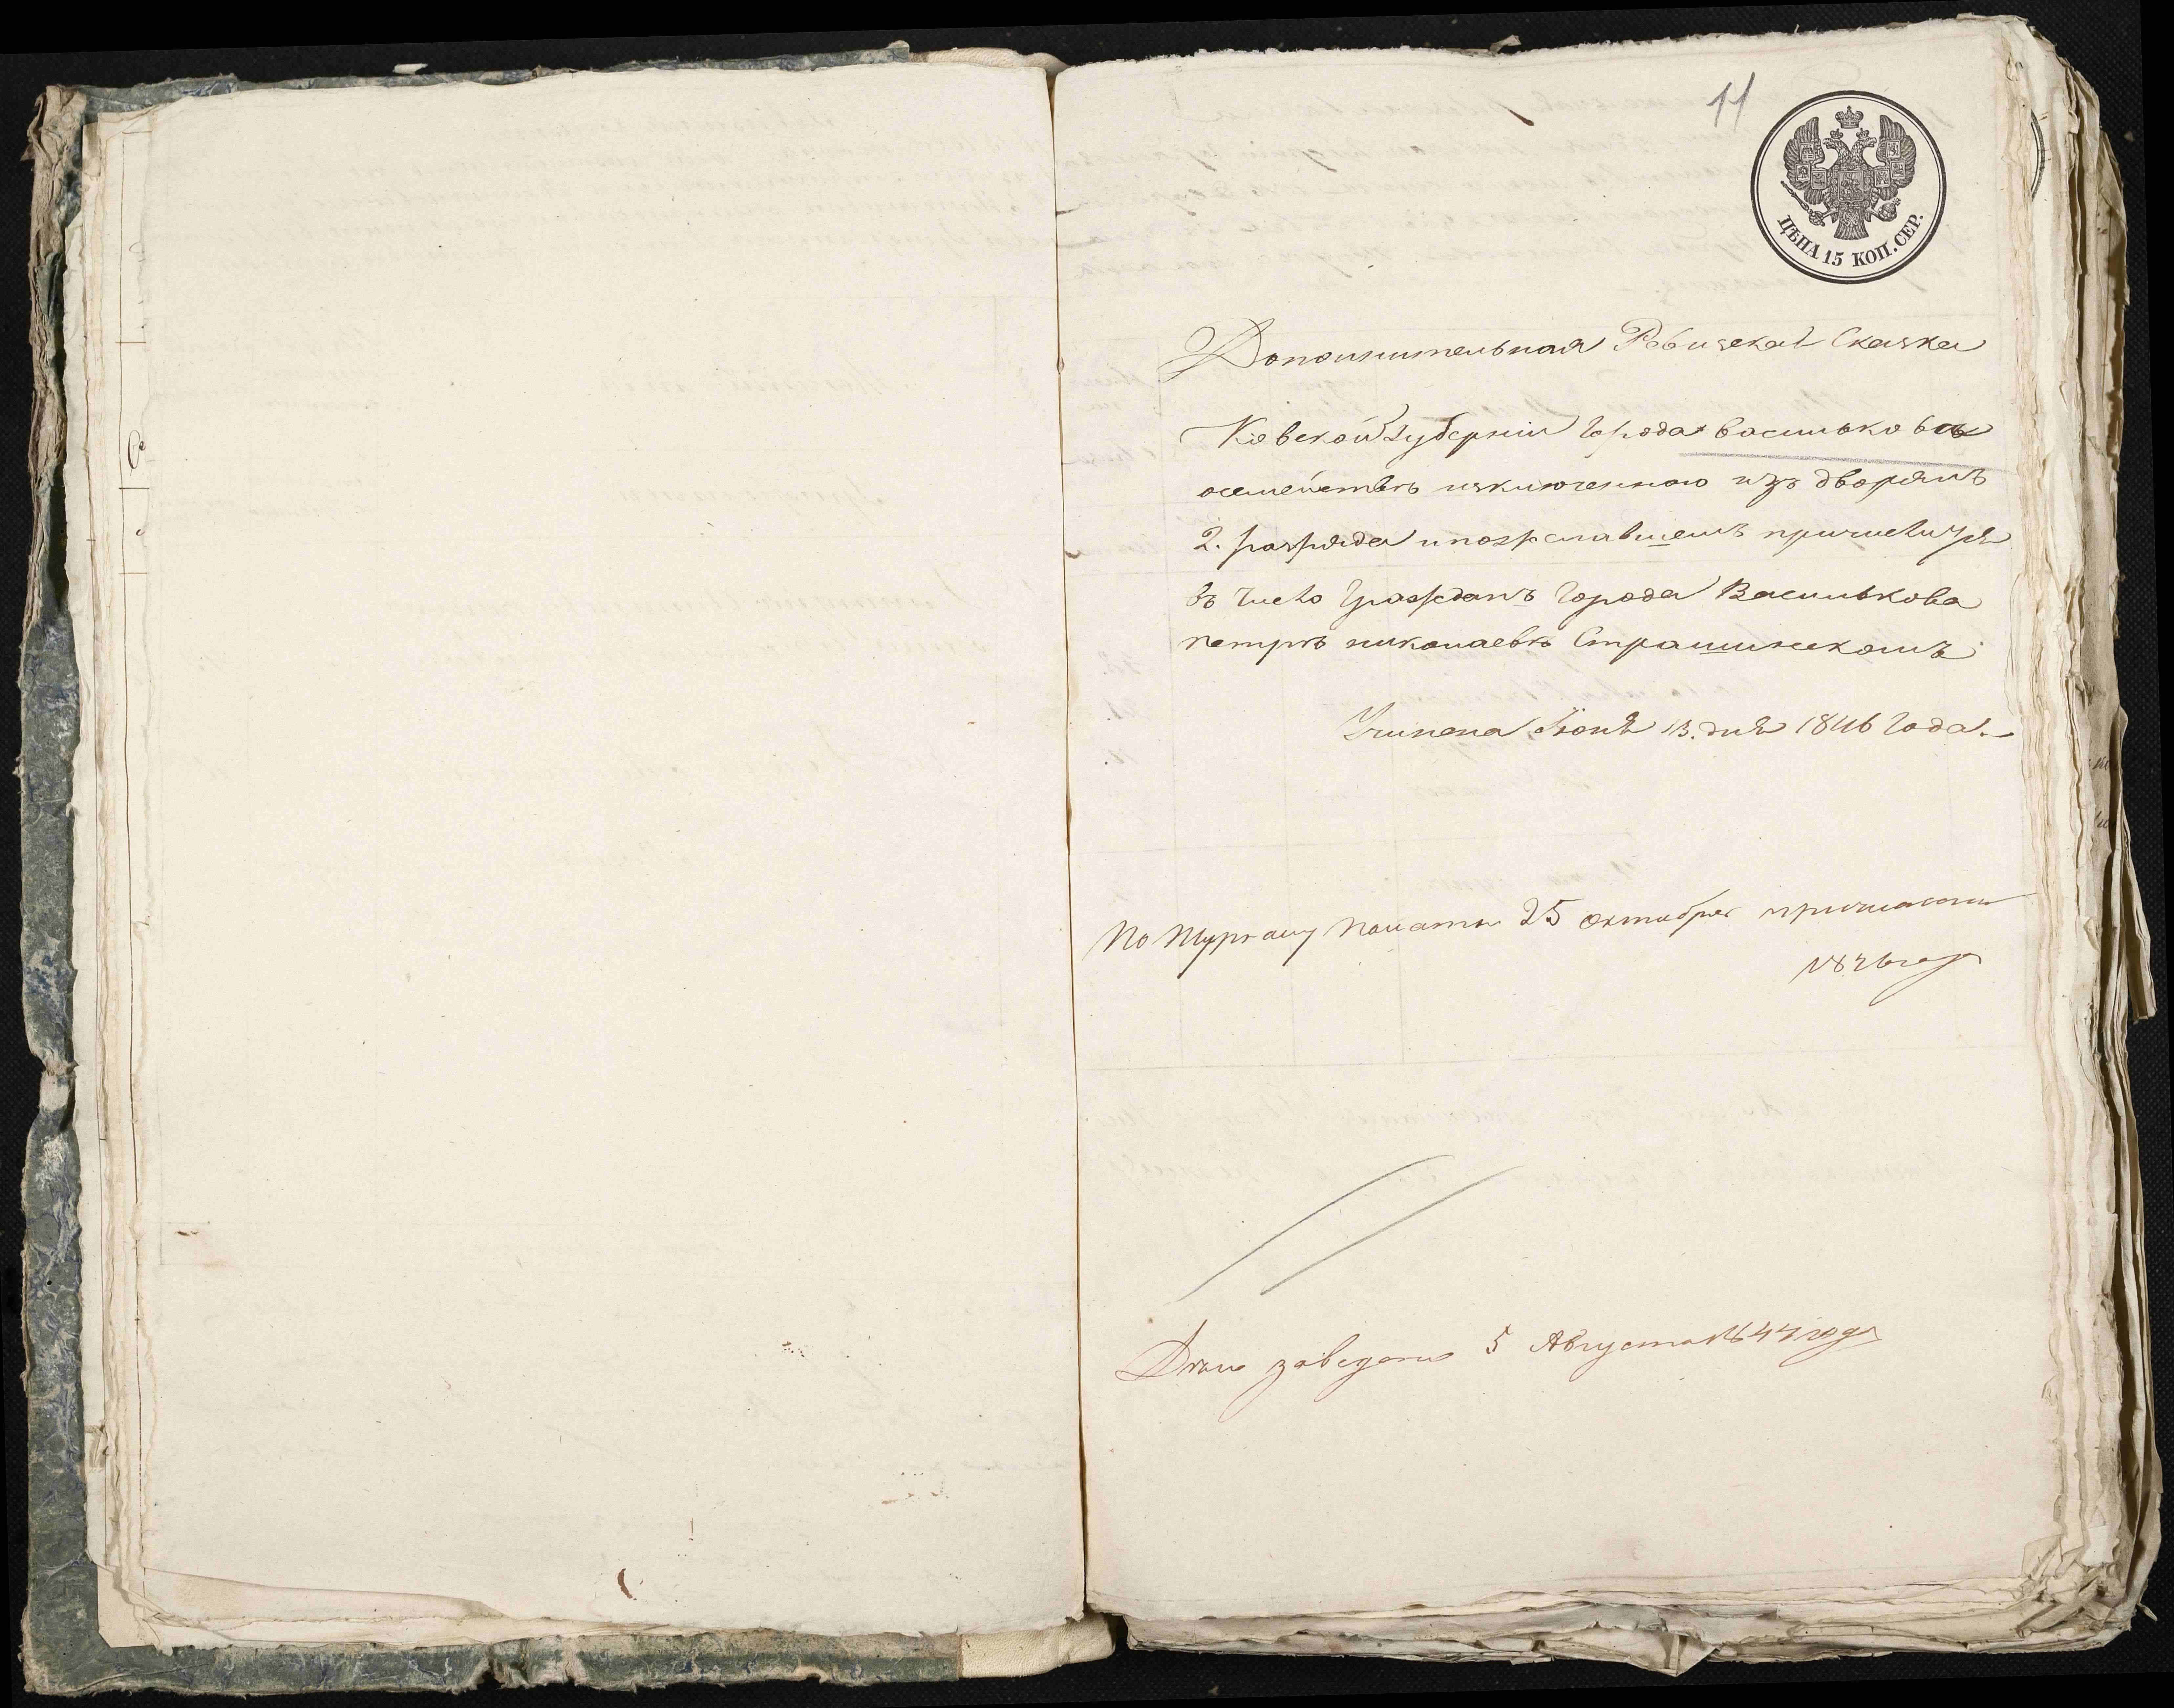 11
ЦѢНА 15 КОП. СЕР.
Дополнительная Ревизская Сказка
Кіевской Губерніи Города Василькова
осемействѣ изключенного изъ дворянъ
2. разряда и
въ число Гражданъ Города Василькова
петрѣ николаевѣ Страшинскомъ
Учинена Іюня 13. дня 1846 Года.
По Журналу Палаты 25 октября причислены
1846 года
Дѣло заведено 5 Августа 1844 года